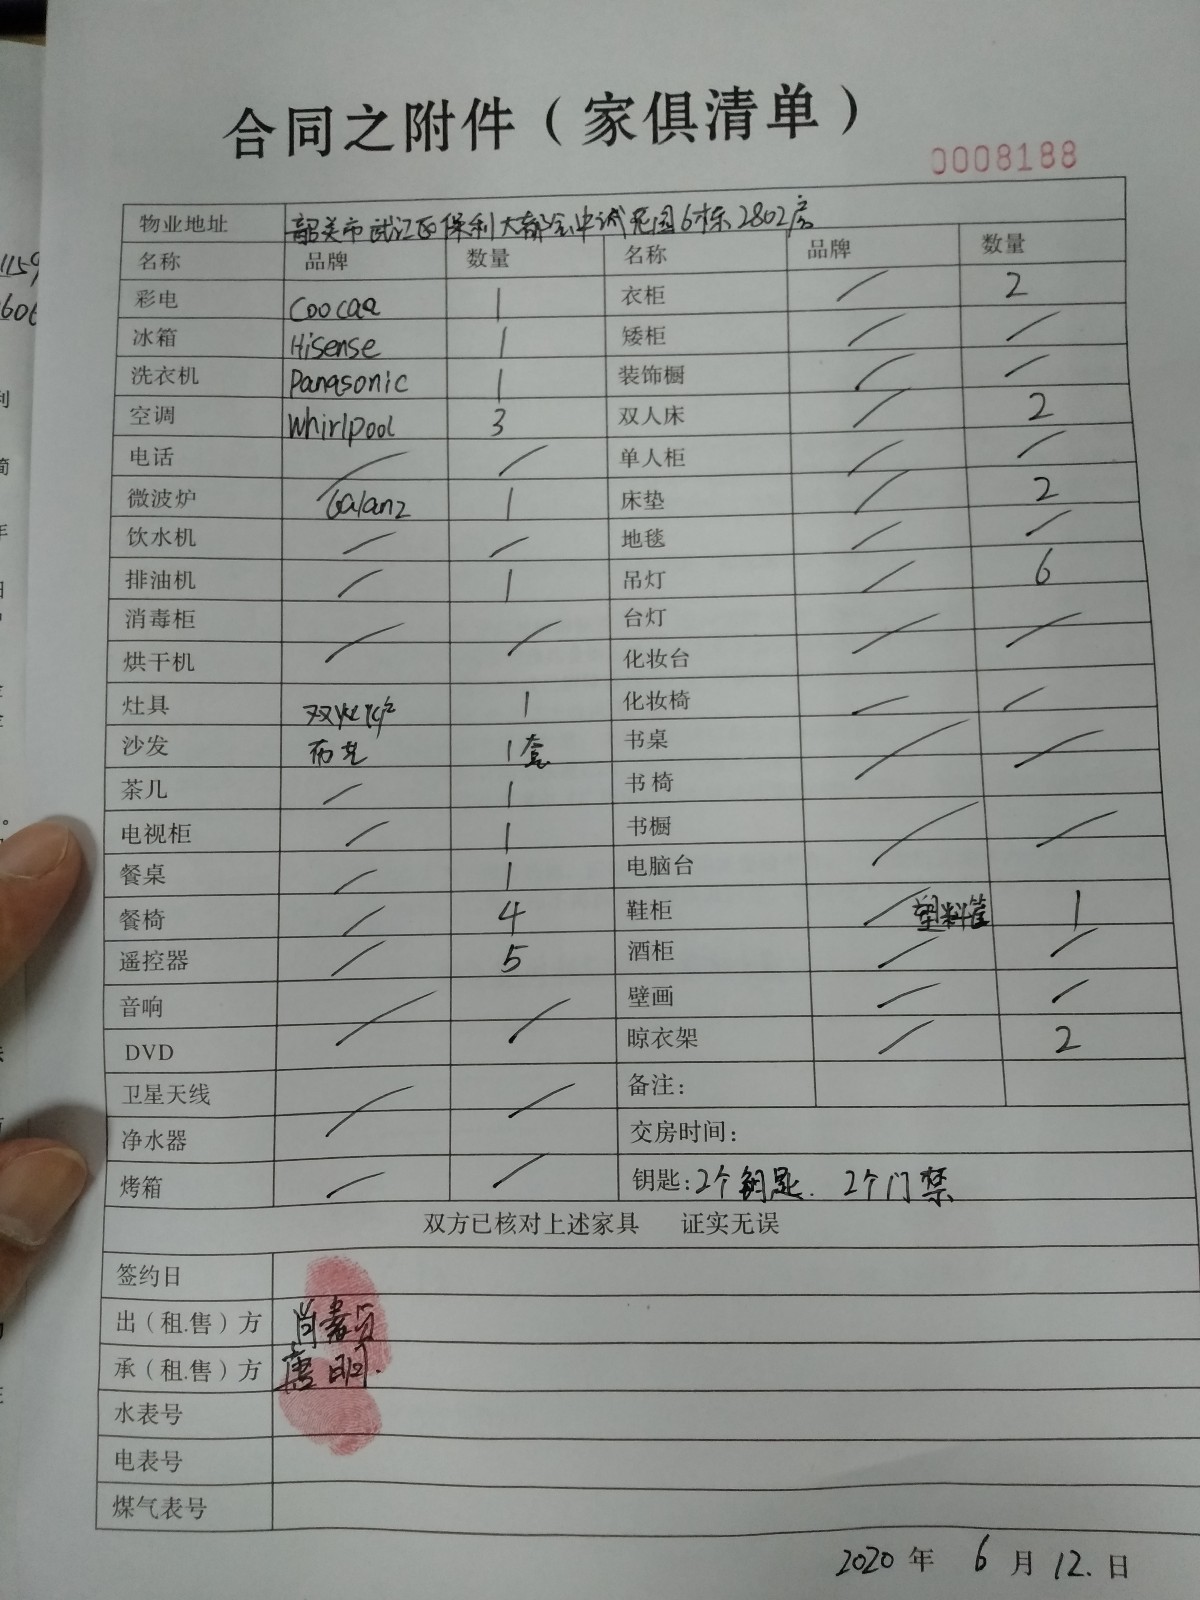 合同之附件（家俱清单）
0008188
物业地址 韶关市武江区保利大都会中诚花园6栋2802房
名称 品牌 数量 名称 品牌 数量
彩电 Coocaa 1 衣柜 / 2
冰箱 Hisense 1 矮柜 / /
洗衣机 Panasonic 1 装饰橱 / /
空调 Whirlpool 3 双人床 / 2
电话 / / 单人柜 / /
微波炉 Galanz 1 床垫 / 2
饮水机 / / 地毯 / /
排油机 / 1 吊灯 / 6
消毒柜 / / 台灯 / /
烘干机 化妆台
灶具 双灶 1 化妆椅 / /
沙发 布艺 1套 书桌 / /
茶几 / 1 书椅
电视柜 / 1 书橱 / /
餐桌 / 1 电脑台
餐椅 / 4 鞋柜 / 塑料筐 1
遥控器 / 5 酒柜 / /
音响 / / 壁画 / /
DVD 晾衣架 / 2
卫星天线 / / 备注：
净水器 交房时间：
烤箱 / / 钥匙：2个钥匙. 2个门禁
双方已核对上述家具 证实无误
签约日
出（租.售）方
承（租.售）方 唐明.
水表号
电表号
煤气表号
2020年 6月12.日